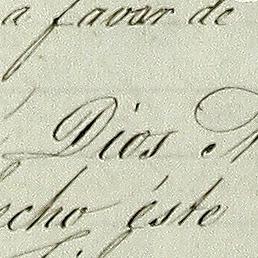 a favor de
Dios
echo éste